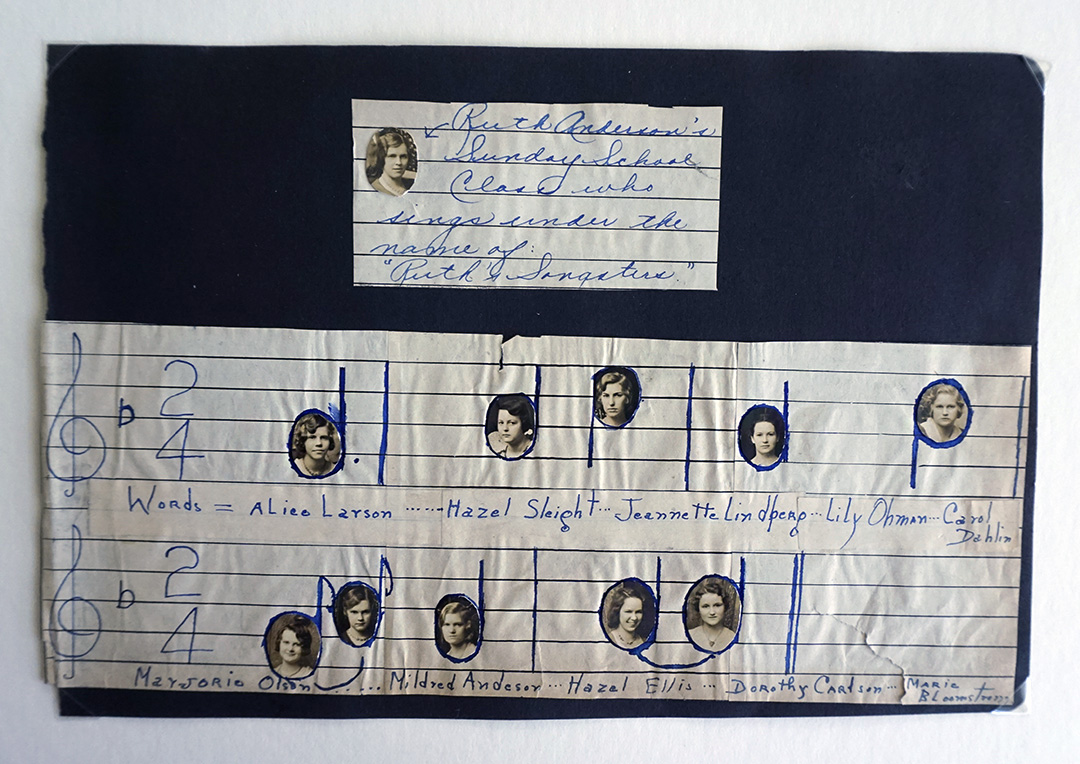 Ruth Anderson's
Sunday School
Class who
sings under the
name of:
"Ruth's Songsters."
b 2 4
Words = Alice Larson ...... Hazel Sleight ... Jeannette Lindberg ... Lily Ohman ... Carol
Dahlin
b 2 4
Marjorie Olson ...... Mildred Andeson ... Hazel Ellis ... Dorothy Carlson ... Marie
Bloomstrom